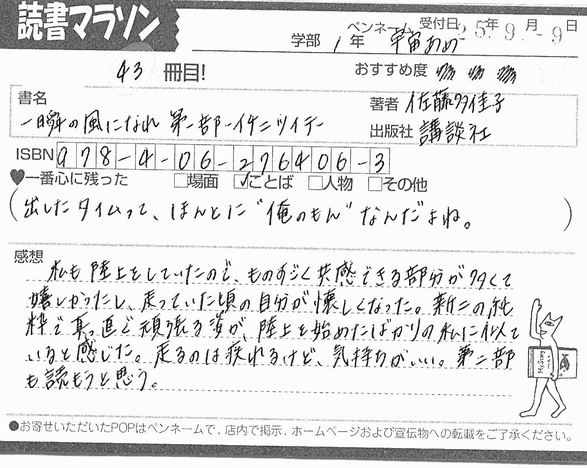 読書マラソン
学部 1年 ペンネーム 宇宙あめ 受付日 25年9月-9日
43 冊目! おすすめ度
書名 著者 佐藤多佳子
一瞬の風になれ 第一部-イチニツイテ- 出版社 講談社
ISBN 978-4-06-276406-3
♥一番心に残った □場面 ☑ことば □人物 □その他
(出したタイムって、ほんとに“俺のもん”なんだよね。)
感想
私も陸上をしていたので、ものすごく共感できる部分が多くて
嬉しかったし、走っていた頃の自分が懐しくなった。新二の純
粋で真っ直で頑張る姿が、陸上を始めたばかりの私に似て
いると感じた。走るのは疲れるけど、気持ちがいい。第二部
も読もうと思う。
●お寄せいただいたPOPはペンネームで、店内で掲示、ホームページおよび宣伝物への転載をご了承ください。